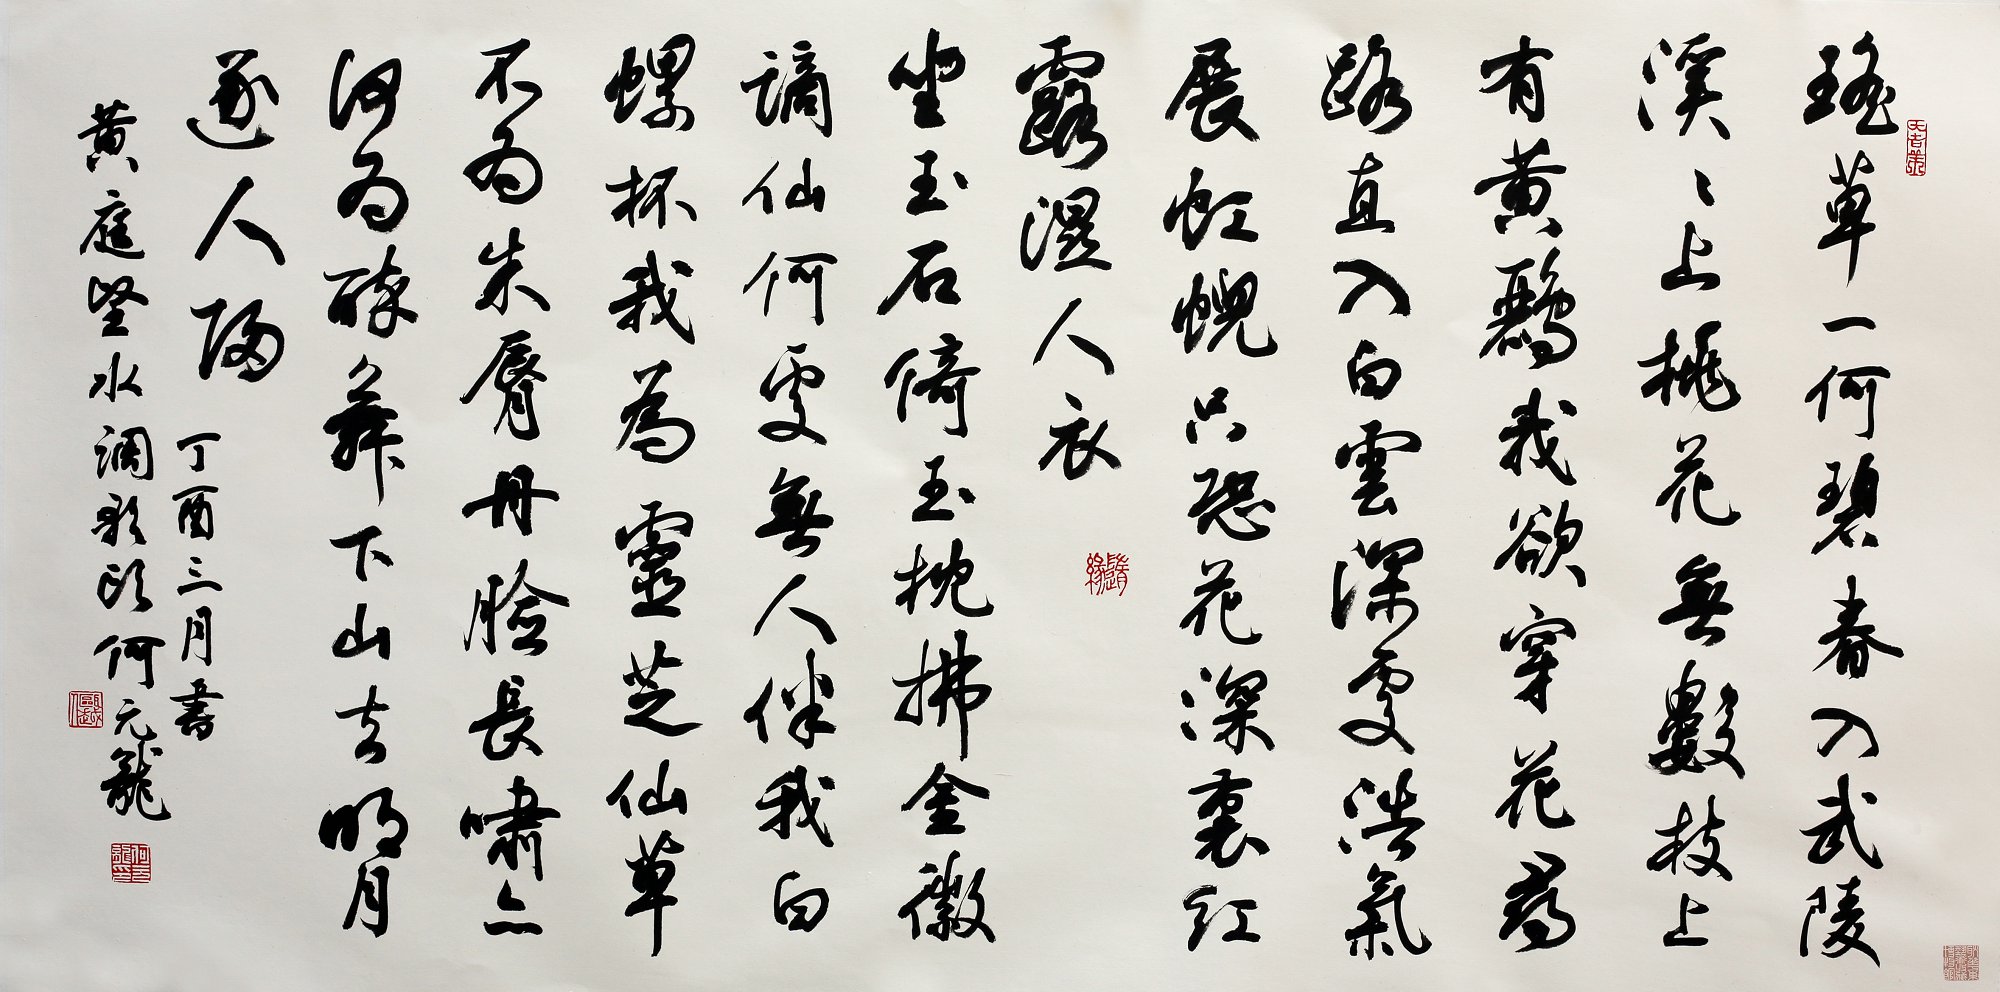 瑤草一何碧春入武陵
溪〻上桃花無數枝上
有黃鸝我欲穿花尋
路直入白雲深處浩氣
展虹蜺只恐花深裏紅
露濕人衣
坐玉石倚玉枕拂金徽
謫仙何處無人伴我白
螺杯我為靈芝仙草
不為朱脣丹臉長嘯亦
何為醉舞下山去明月
逐人歸
丁酉三月書
黃庭堅水調歌頭何元龍
隨緣